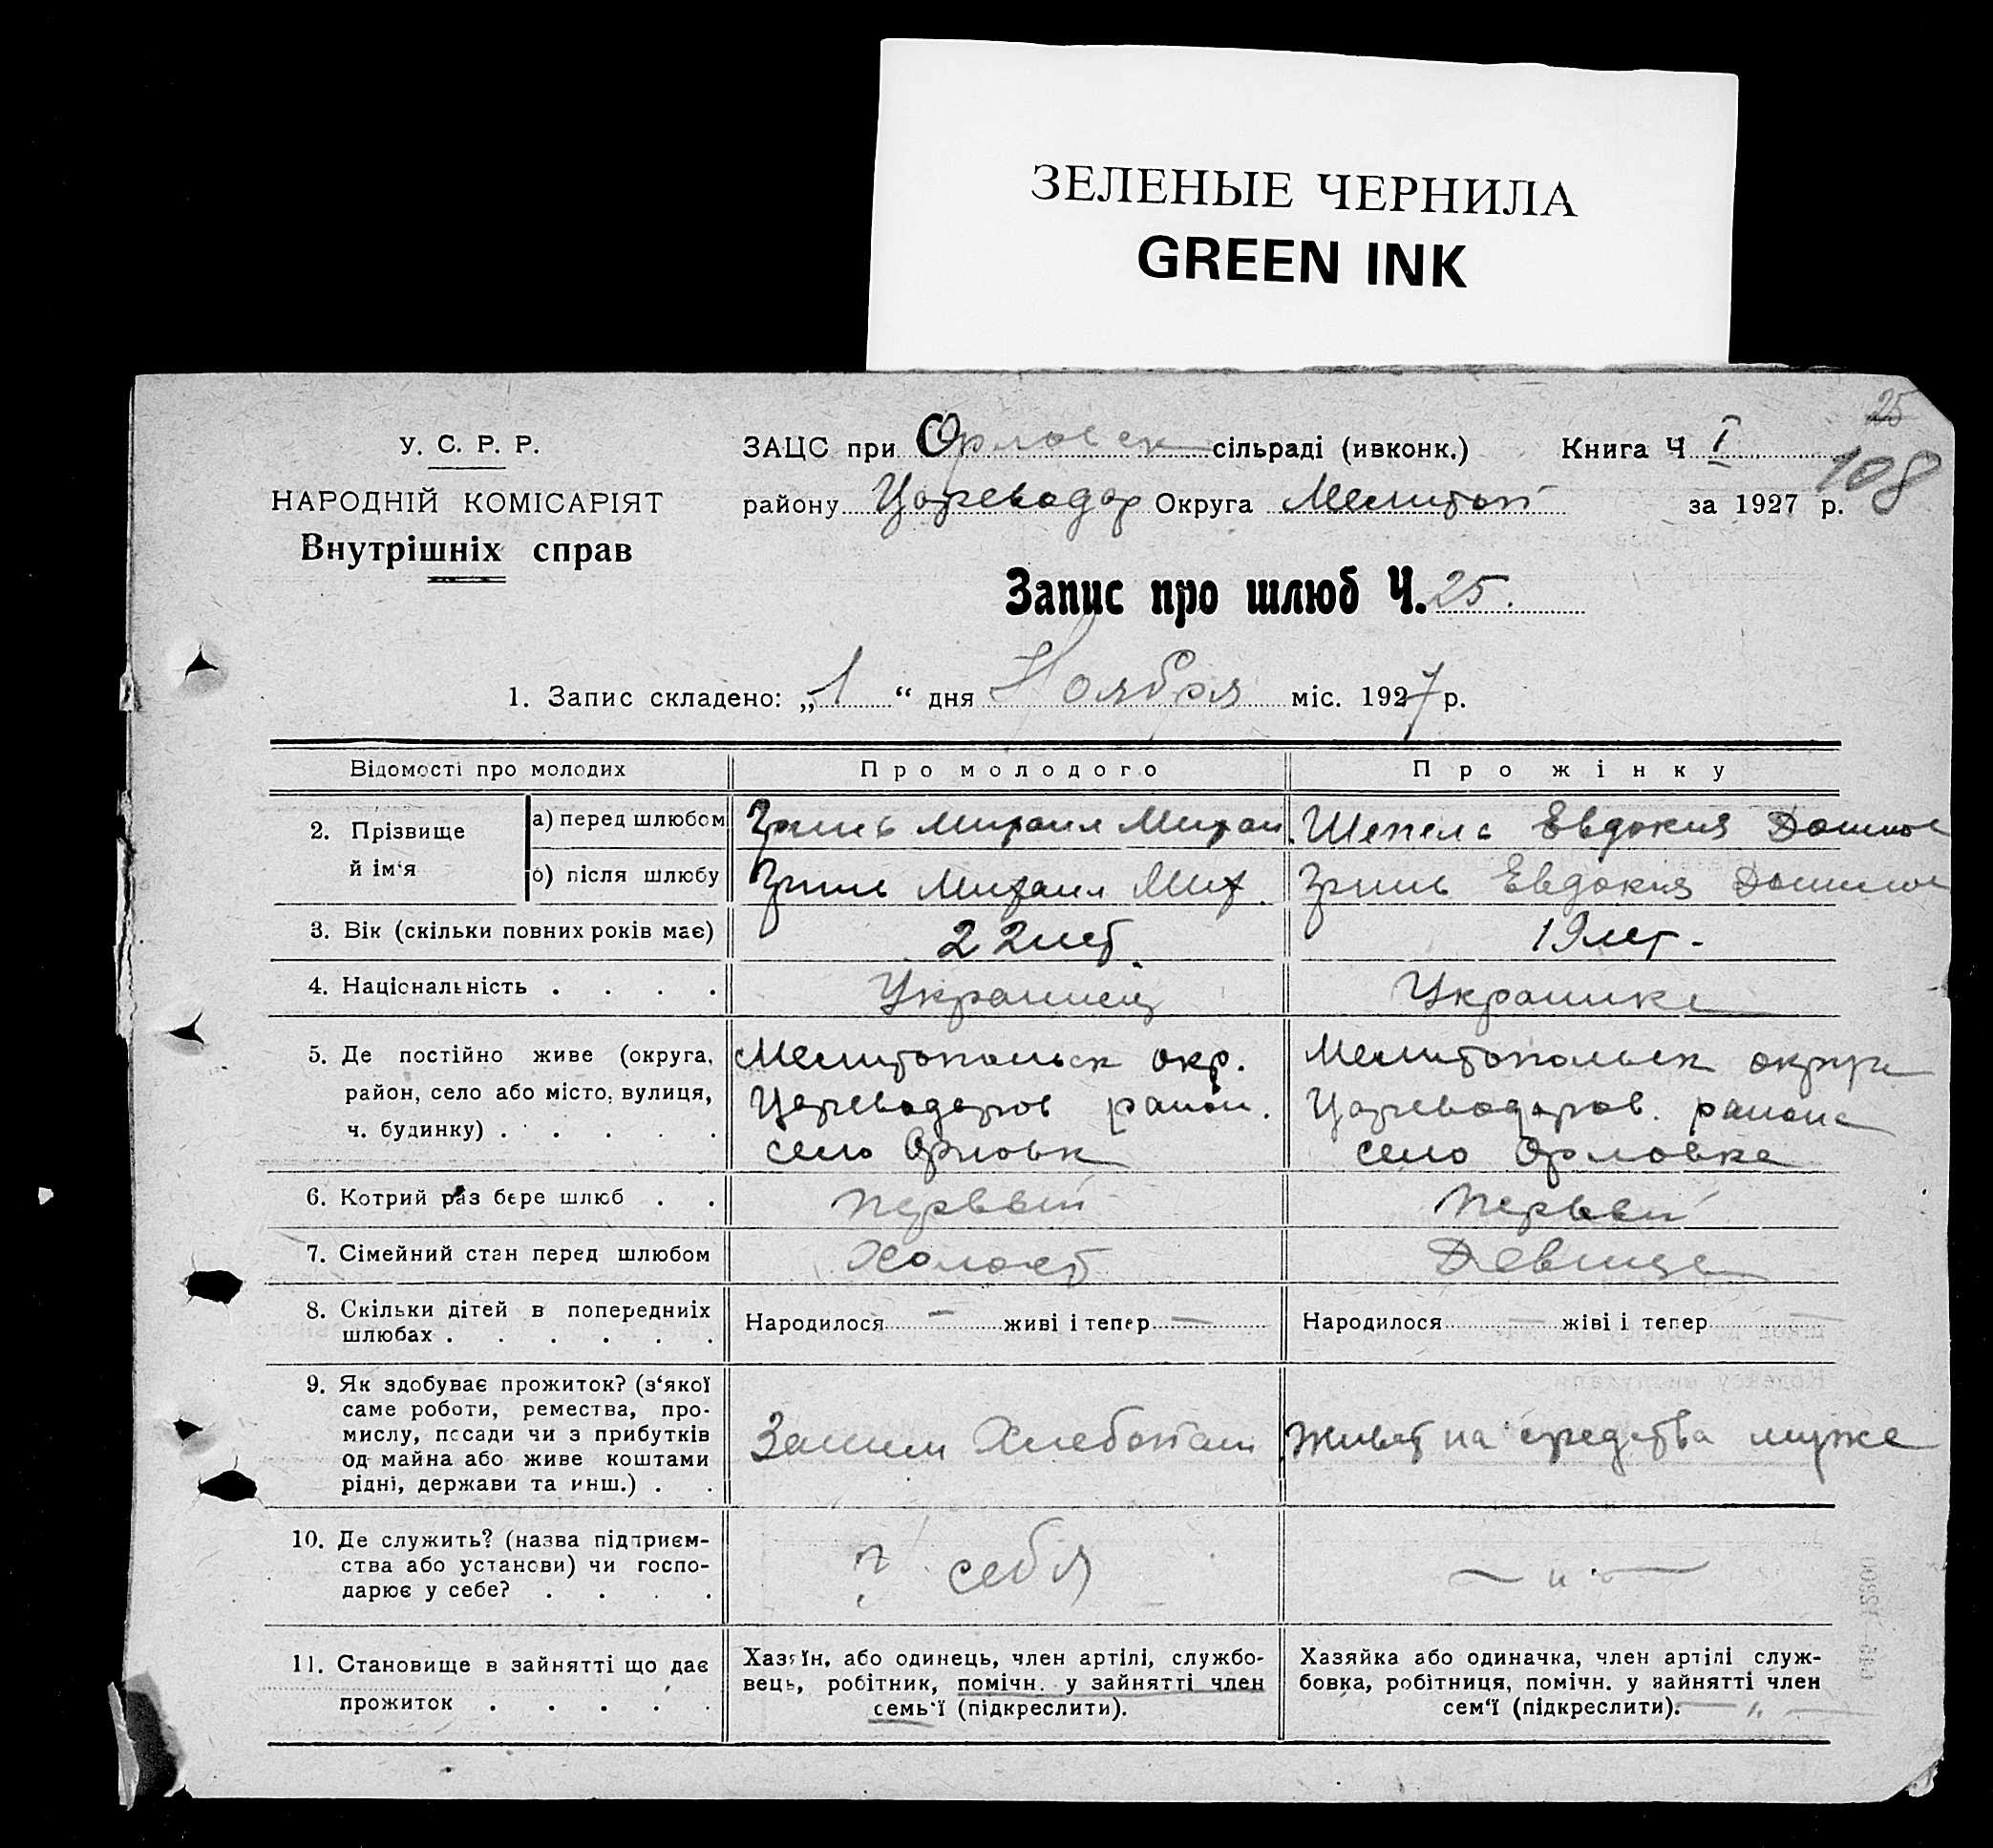 ЗЕЛЕНЫЕ ЧЕРНИЛА
GREEN INK
25
108
У. С. Р. Р.
НАРОДНІЙ КОМІСАРІЯТ
Внутрішніх справ
ЗАЦС при Орловск сільраді (ивконк.) Книга Ч I
району Цареводар Округа Мелитоп за 1927 р.
Запис про шлюб Ч. 25.
1. Запис складено: „1“ дня Ноября міс. 1927 р.
Відомості про молодих Про молодого Про жінку
2. Прізвище й ім'я
а) перед шлюбом Михаил Шепель Евдокия
о) після шлюбу Михаил Мих. Евдокия
3. Вік (скільки повних років має) 22 лет 19 лет.
4. Національність . . . . Украинец Украинка
5. Де постійно живе (округа, Мелитопольск окр. Мелитопольск округа
район, село або місто, вулиця, Цареводаров район. Цареводаров. района
ч. будинку) . . . . . село Орловк село Орловка
6. Котрий раз бере шлюб . . Первый Первый
7. Сімейний стан перед шлюбом Холост Девица
8. Скільки дітей в попередниіх
шлюбах . . . . . .
Народилося — живі і тепер —
Народилося — жіві і тепер —
9. Як здобуває прожиток? (з‘якої
саме роботи, ремества, про-
мислу, посади чи з прибутків
од майна або живе коштами
рідні, держави та инш.) . .
Хлебопаш
Живет на средства мужа
10. Де служить? (назва підприєм-
ства або установи) чи госпо-
дарює у себе? . . . .
себя
— „ —
11. Становище в зайнятті що дає
прожиток . . . . .
Хазяїн, або одинець, член артілі, службо-
вець, робітник, помічн. у зайнятті член
семь'ї (підкреслити).
Хазяйка або одиначка, член артілі служ-
бовка, робітниця, помічн. у зайнятті член
сем‘ї (підкреслити). — „ —